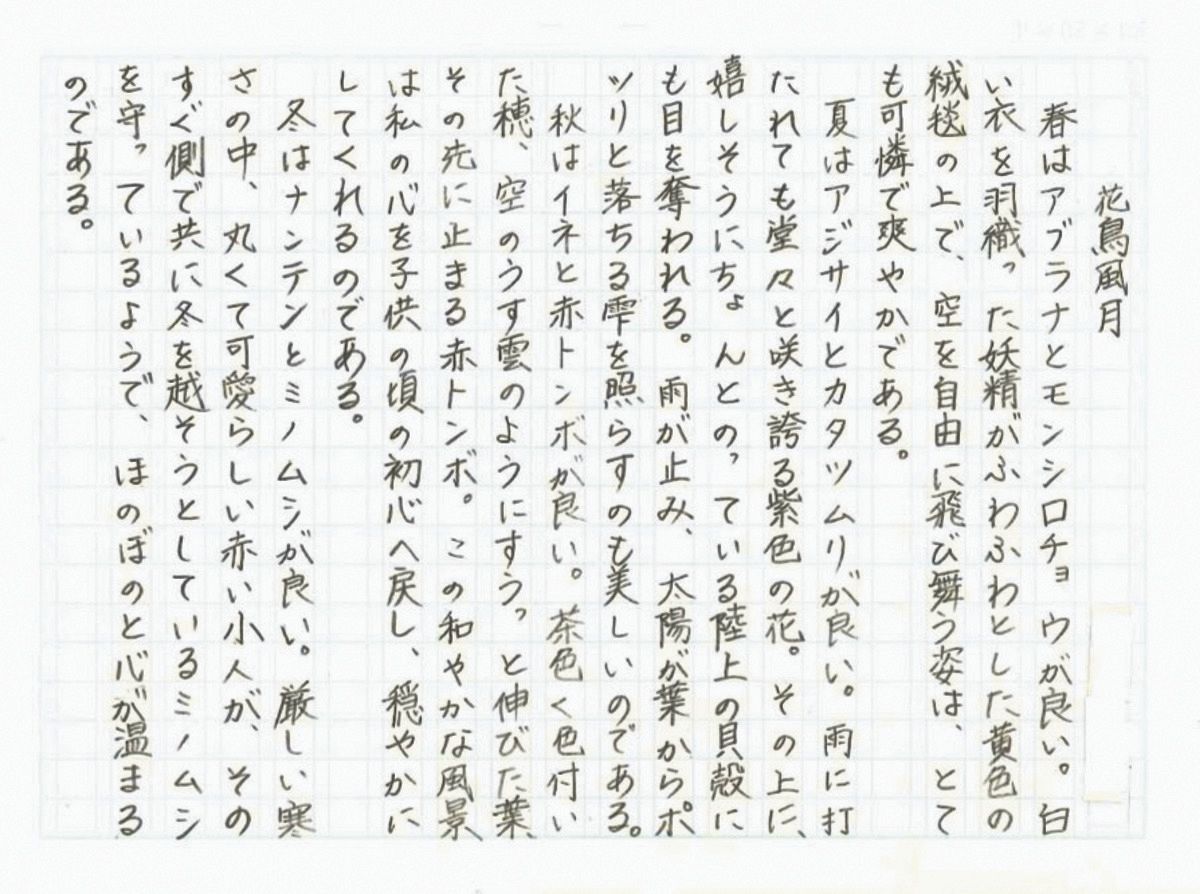 花鳥風月
春はアブラナとモンシロチョウが良い。白
い衣を羽織った妖精がふわふわとした黄色の
絨毯の上で、空を自由に飛び舞う姿は、とて
も可憐で爽やかである。
夏はアジサイとカタツムリが良い。雨に打
たれても堂々と咲き誇る紫色の花。その上に、
嬉しそうにちょんとのっている陸上の貝殻に
も目を奪われる。雨が止み、太陽が葉からポ
ツリと落ちる雫を照らすのも美しいのである。
秋はイネと赤トンボが良い。茶色く色付い
た穂、空のうす雲のようにすうっと伸びた葉、
その先に止まる赤トンボ。この和やかな風景
は私の心を子供の頃の初心へ戻し、穏やかに
してくれるのである。
冬はナンテンとミノムシが良い。厳しい寒
さの中、丸くて可愛らしい赤い小人が、その
すぐ側で共に冬を越そうとしているミノムシ
を守っているようで、ほのぼのと心が温まる
のである。